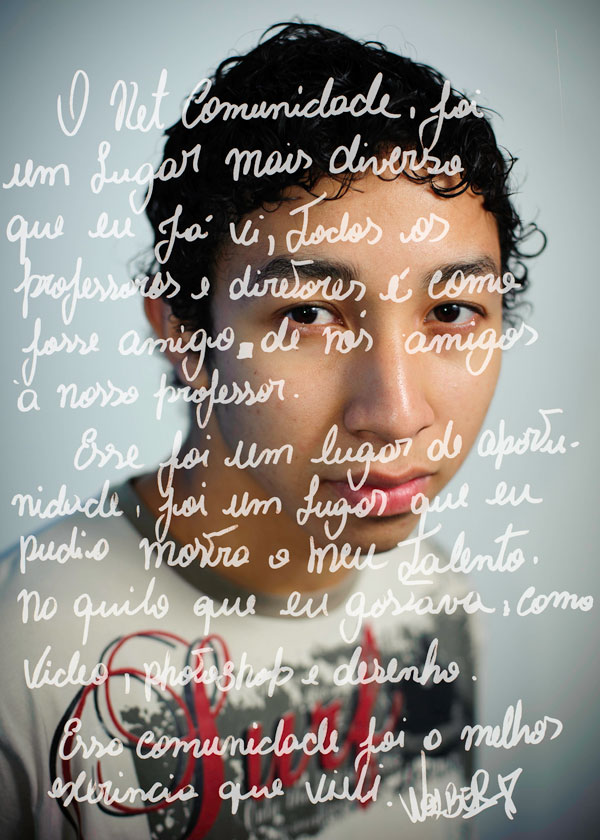 O Net Comunidade, foi
um Lugar mais diverso
que eu Já vi, Todos os
professores e diretores é como
fosse amigo de nós amigos
à nosso professor.
Esse foi um lugar de aportu-
nidade, foi um Lugar que eu
pudio mostra o meu Talento.
No quilo que eu gostava, como
Video, photoshop e desenho.
Essa comunidade foi o melhos
exerincia que vivi.
Surf